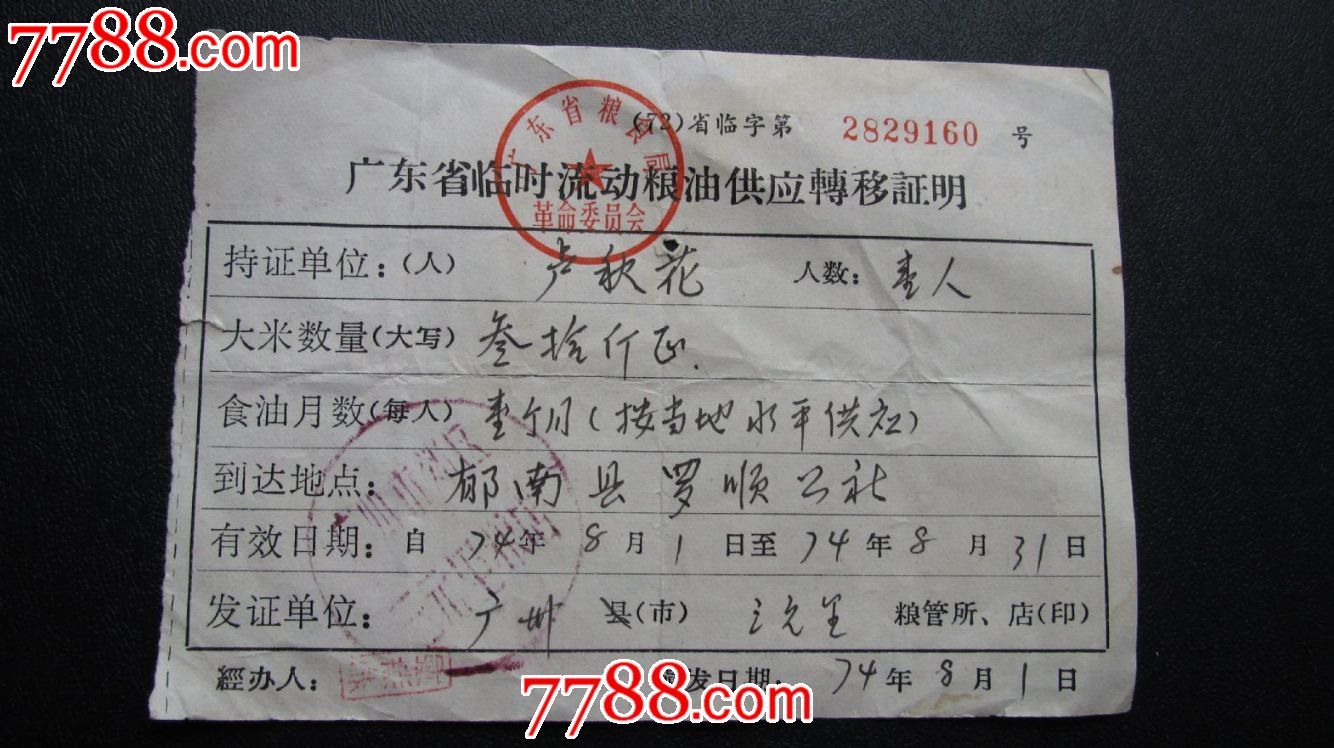 7788.com
7788.com
(72)省临字第 2829160 号
广东省粮食局
革命委员会
广东省临时流动粮油供应轉移証明
持证单位:(人) 卢秋花 人数: 壹人
大米数量(大写) 叁拾斤正.
食油月数(每人) 壹个月(按当地水平供应)
到达地点: 郁南县罗顺公社
有效日期: 自 74年 8月1日至 74年8月31日
发证单位: 广州 县(市) 三元里 粮管所、店(印)
經办人: 发日期: 74年8月1日
7788.com
7788.com